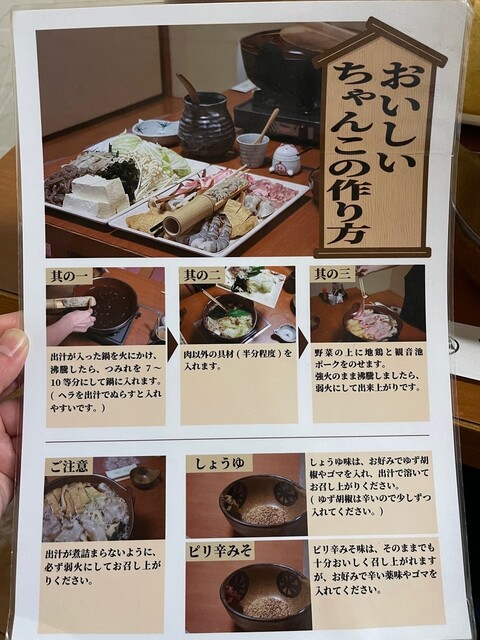 おいしい
ちゃんこの作り方
其の一
出汁が入った鍋を火にかけ、
沸騰したら、つみれを 7～
10 等分にして鍋に入れます。
( ヘラを出汁でぬらすと入れ
やすいです。)
其の二
肉以外の具材 ( 半分程度 ) を
入れます。
其の三
野菜の上に地鶏と観音池
ポークをのせます。
強火のまま沸騰しましたら、
弱火にして出来上がりです。
ご注意
出汁が煮詰まらないように、
必ず弱火にしてお召し上が
りください。
しょうゆ
しょうゆ味は、お好みでゆず胡
椒やゴマを入れ、出汁で溶いて
お召し上がりください。
( ゆず胡椒は辛いので少しずつ
入れてください。)
ピリ辛みそ
ピリ辛みそ味は、そのままでも
十分おいしく召し上がれます
が、お好みで辛い薬味やゴマを
入れてください。